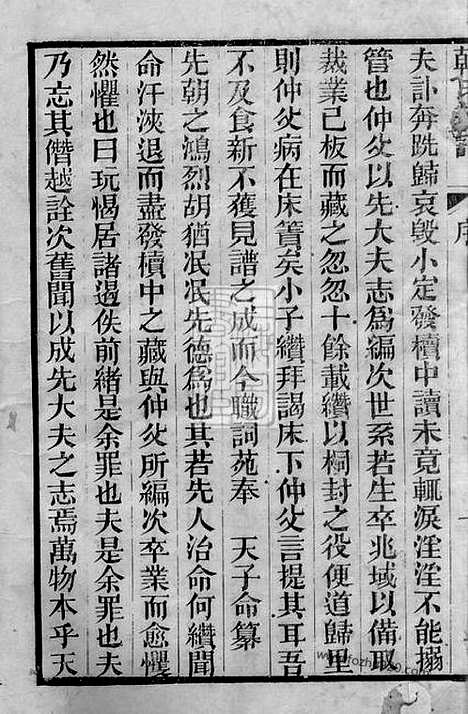 序
夫訃奔跣歸哀毀小定發櫝中讀未竟輒淚淫淫不能搦
管也仲父以先大夫志爲編次世系若生卒兆域以備取
裁業已板而藏之忽忽十餘載纘以桐封之役便道歸里
則仲父病在床簀矣小子纘拜謁床下仲父言提其耳吾
不及食新不獲見譜之成而今職詞苑奉　天子命纂
先朝之鴻烈胡猶泯泯先德爲也其若先人治命何纘聞
命汗浹退而盡發櫝中之藏與仲父所編次卒業而愈懼
然懼也曰玩愒居諸遏佚前緒是余罪也夫是余罪也夫
乃忘其僭越詮次舊聞以成先大夫之志焉萬物本乎天